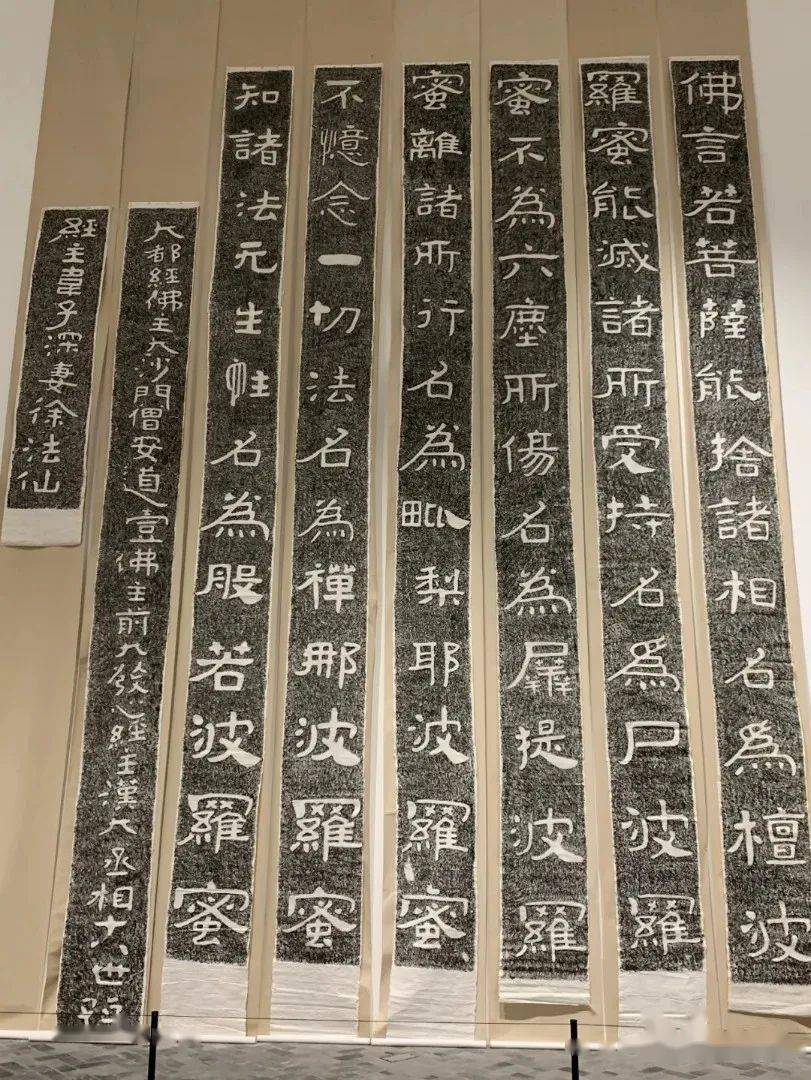 佛言若菩薩能捨諸相名為檀波
羅蜜能滅諸所受持名為尸波羅
蜜不為六塵所傷名為羼提波羅
蜜離諸所行名為毗梨耶波羅蜜
不憶念一切法名為禪那波羅蜜
知諸法无生性名為般若波羅蜜
大都經佛主大沙門僧安道壹佛主前大發心經主漢大丞相十六世孫
經主韋子深妻徐法仙